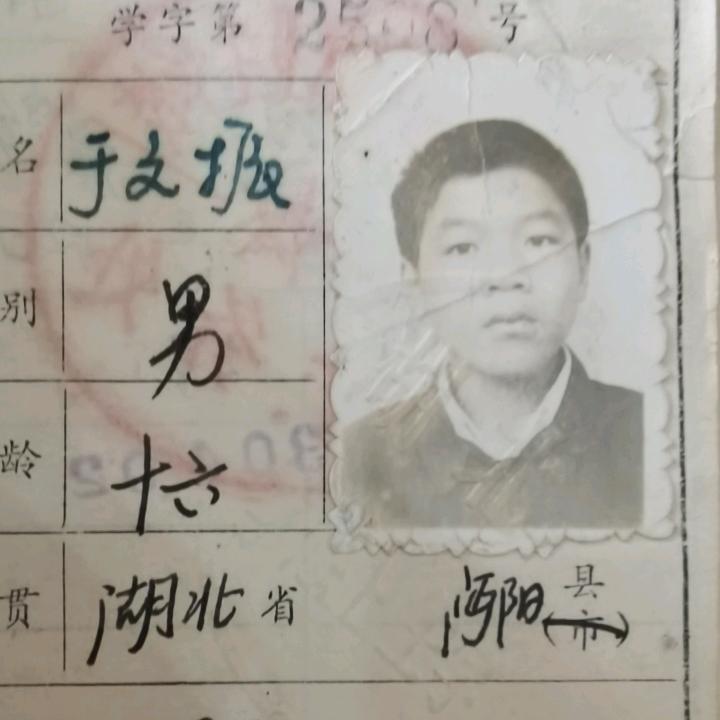 学字第2508号
名 于文振
别 男
龄 十六
贯 湖北省 沔阳县(市)